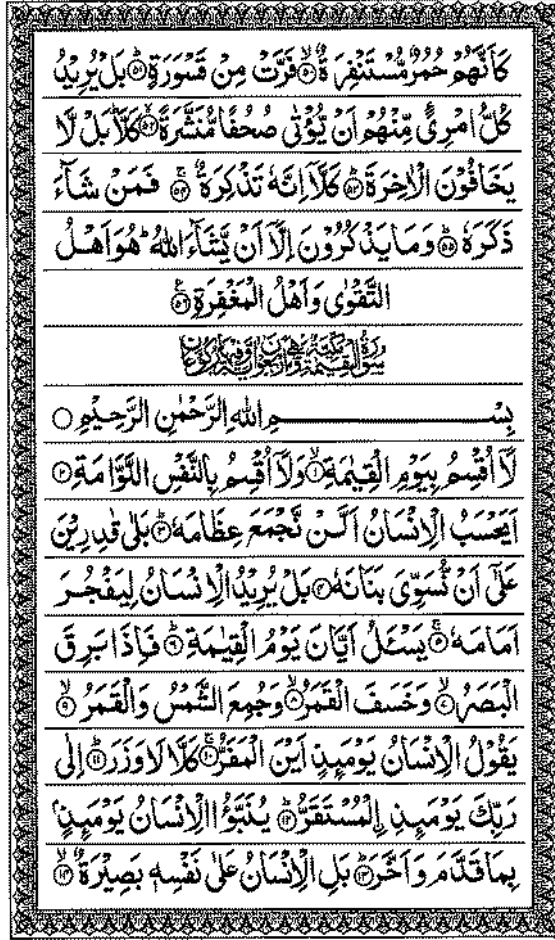 كَاَنَّهُمۡ حُمُرٌ مُّسۡتَنۡفِرَةٌ ۙ‏﴿۵۰﴾ فَرَّتۡ مِنۡ قَسۡوَرَةٍ ؕ‏﴿۵۱﴾ بَلۡ يُرِيۡدُ
كُلُّ امۡرِىٴٍ مِّنۡهُمۡ اَنۡ يُّؤۡتٰى صُحُفًا مُّنَشَّرَةً ۙ‏﴿۵۲﴾ كَلَّا ؕ بَلۡ لَّا
يَخَافُوۡنَ الۡاٰخِرَةَ ؕ‏﴿۵۳﴾ كَلَّاۤ اِنَّهٗ تَذۡكِرَةٌ ۚ‏﴿۵۴﴾ فَمَنۡ شَآءَ
ذَكَرَهٗ ؕ‏﴿۵۵﴾ وَمَا يَذۡكُرُوۡنَ اِلَّاۤ اَنۡ يَّشَآءَ اللّٰهُ ؕ هُوَ اَهۡلُ
التَّقۡوٰى وَاَهۡلُ الۡمَغۡفِرَةِ ﴿۵۶﴾
سُوۡرَةُ الۡقِيٰمَةِ مَكِّيَّةٌ وَّهِىَ اَرۡبَعُوۡنَ اٰيَةً وَّفِيۡهَا رُكُوۡعَانِ
بِسۡمِ اللّٰهِ الرَّحۡمٰنِ الرَّحِيۡمِ ○
لَاۤ اُقۡسِمُ بِيَوۡمِ الۡقِيٰمَةِ ۙ‏﴿۱﴾ وَلَاۤ اُقۡسِمُ بِالنَّفۡسِ اللَّوَّامَةِ ؕ‏﴿۲﴾
اَيَحۡسَبُ الۡاِنۡسَانُ اَلَّنۡ نَّجۡمَعَ عِظَامَهٗ ؕ‏﴿۳﴾ بَلٰى قٰدِرِيۡنَ
عَلٰٓى اَنۡ نُّسَوِّىَ بَنَانَهٗ ﴿۴﴾ بَلۡ يُرِيۡدُ الۡاِنۡسَانُ لِيَفۡجُرَ
اَمَامَهٗ ۚ‏﴿۵﴾ يَسۡـَٔلُ اَيَّانَ يَوۡمُ الۡقِيٰمَةِ ؕ‏﴿۶﴾ فَاِذَا بَرِقَ
الۡبَصَرُ ۙ‏﴿۷﴾ وَخَسَفَ الۡقَمَرُ ۙ‏﴿۸﴾ وَجُمِعَ الشَّمۡسُ وَالۡقَمَرُ ۙ‏﴿۹﴾
يَقُوۡلُ الۡاِنۡسَانُ يَوۡمَٮِٕذٍ اَيۡنَ الۡمَفَرُّ ۚ‏﴿۱۰﴾ كَلَّا لَا وَزَرَ ؕ‏﴿۱۱﴾ اِلٰى
رَبِّكَ يَوۡمَٮِٕذِ ۨالۡمُسۡتَقَرُّ ؕ‏﴿۱۲﴾ يُنَبَّؤُا الۡاِنۡسَانُ يَوۡمَٮِٕذٍۢ
بِمَا قَدَّمَ وَاَخَّرَ ؕ‏﴿۱۳﴾ بَلِ الۡاِنۡسَانُ عَلٰى نَفۡسِهٖ بَصِيۡرَةٌ ۙ‏﴿۱۴﴾